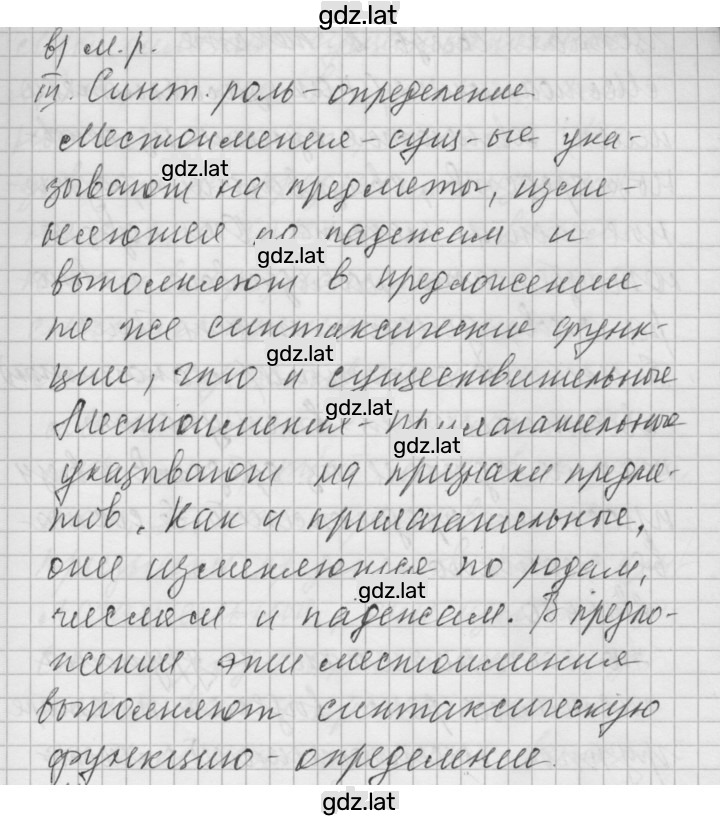 gdz.lat
в) м.р.
III. Синт. роль - определение
Местоимения - сущ-ые ука-
gdz.lat
зывают на предметы, изме-
няются по падежам и
gdz.lat
выполняют в предложении
те же синтаксические функ-
gdz.lat
ции, что и существительные
gdz.lat
Местоимения - прилагательные
gdz.lat
указывают на признаки предме-
тов. Как и прилагательные,
они изменяются по родам,
gdz.lat
числам и падежам. В предло-
жении эти местоимения
выполняют синтаксическую
функцию - определение.
gdz.lat